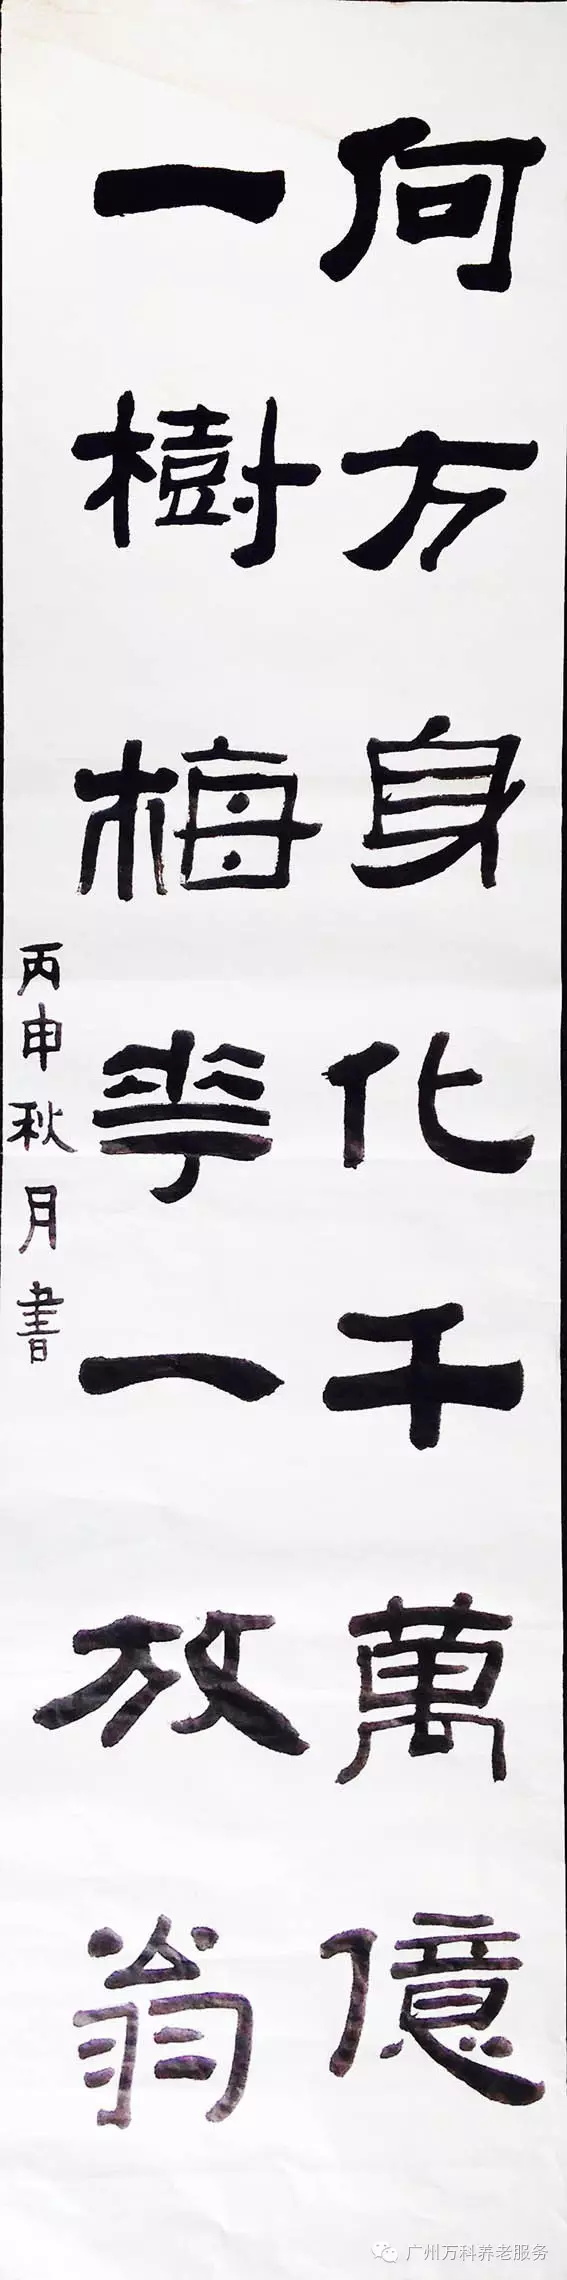 何方身化千萬億
一樹梅花一放翁
丙申秋月書
广州万科养老服务